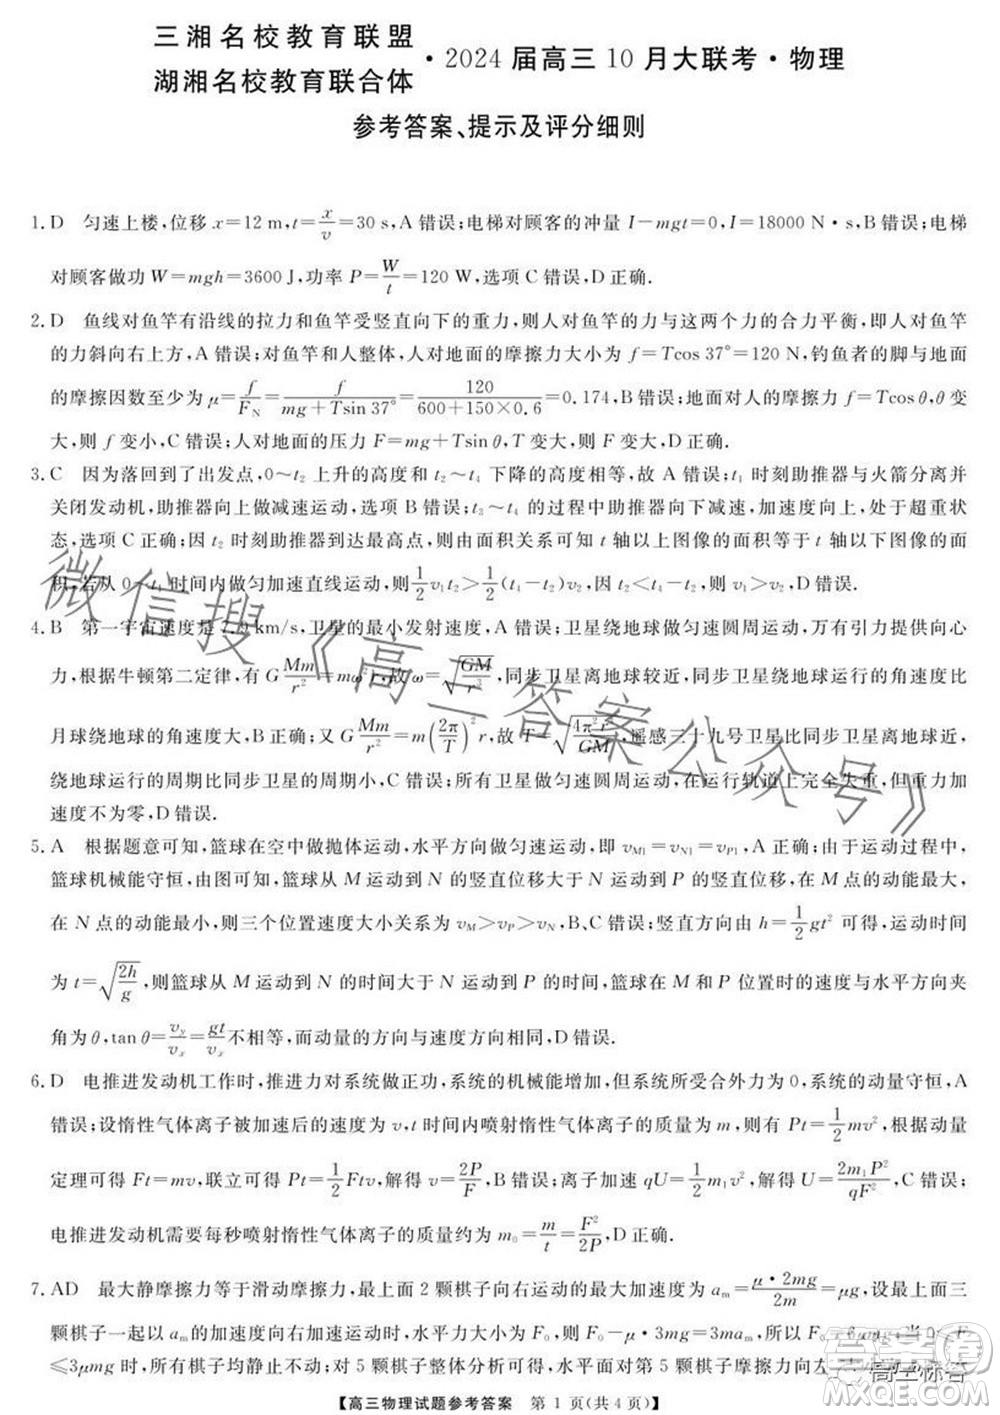 三湘名校教育联盟
湖湘名校教育联合体
·2024届高三10月大联考·物理
参考答案、提示及评分细则
1. D 匀速上楼,位移 x=12 m,t=x/v=30 s,A 错误;电梯对顾客的冲量 I-mgt=0,I=18000 N·s,B 错误;电梯
对顾客做功 W=mgh=3600 J,功率 P=W/t=120 W,选项 C 错误,D 正确.
2. D 鱼线对鱼竿有沿线的拉力和鱼竿受竖直向下的重力,则人对鱼竿的力与这两个力的合力平衡,即人对鱼竿
的力斜向右上方,A 错误;对鱼竿和人整体,人对地面的摩擦力大小为 f=Tcos 37°=120 N,钓鱼者的脚与地面
的摩擦因数至少为 μ=f/F_N=f/(mg+Tsin 37°)=120/(600+150×0.6)=0.174,B 错误;地面对人的摩擦力 f=Tcos θ,θ 变
大,则 f 变小,C 错误;人对地面的压力 F=mg+Tsin θ,T 变大,则 F 变大,D 正确.
3. C 因为落回到了出发点,0～t₂ 上升的高度与 t₂～t₄ 下降的高度相等,故 A 错误;t₁ 时刻助推器与火箭分离并
关闭发动机,助推器向上做减速运动,选项 B 错误;t₃～t₄ 的过程中助推器向下减速,加速度向上,处于超重状
态,选项 C 正确;因 t₂ 时刻助推器到达最高点,则由面积关系可知 t 轴以上图像的面积等于 t 轴以下图像的面
积,若从 0～t₁ 时间内做匀加速直线运动,则½v₁t₂>½(t₄-t₂)v₂,t₂<t₄-t₂,故 D 错误.
4. B 第一宇宙速度是 7.9 km/s,卫星的最小发射速度,A 错误;卫星绕地球做匀速圆周运动,万有引力提供向心
力,根据牛顿第二定律,有 G Mm/r²=mω²r,故 ω=√(GM/r³),同步卫星离地球比月球近,同步卫星绕地球的角速度比
月球绕地球的角速度大,B 正确;又 G Mm/r²=m(2π/T)²r,故 T=√(4π²r³/GM),遥感三十九号卫星比同步卫星离地球近,
绕地球运行的周期比同步卫星的周期小,C 错误;所有卫星做匀速圆周运动,在运行轨道上完全失重,但是向心加
速度不为零,D 错误.
5. A 根据题意可知,篮球在空中做抛体运动,水平方向做匀速运动,即 v_M1=v_N1=v_P1,A 正确;由于运动过程中,
篮球机械能守恒,由图可知,篮球从 M 运动到 N 的竖直位移大于 N 运动到 P 的竖直位移,在 M 点的动能最大,
在 N 点的动能最小,则三个位置速度大小关系为 v_M>v_P>v_N,B、C 错误;竖直方向由 h=½gt² 可得,运动时间
为 t=√(2h/g),则篮球从 M 运动到 N 的时间大于 N 运动到 P 的时间,篮球在 M 和 P 位置时的速度与水平方向夹
角为 θ,tan θ=v_y/v_x=gt/v_x不相等,而动量的方向与速度方向相同,D 错误.
6. D 电推进发动机工作时,推力对系统做正功,系统的机械能增加,但系统所受合外力为 0,系统的动量守恒,A
错误;设惰性气体离子被加速后的速度为 v,t 时间内喷射惰性气体离子的质量为 m,则有 Pt=½mv²,根据动量
定理可得 Ft=mv,可得 Pt=½Ftv,解得 v=2P/F,B 错误;离子加速 qU=½m₁v²,解得 U=2m₁P²/qF²,C 错误;
电推进发动机需要每秒喷射惰性气体离子的质量为 m₀=m/t=F²/2P,D 正确.
7. AD 最大静摩擦力等于滑动摩擦力,最上面 2 颗棋子向右运动的最大加速度为 a_m=μ·2mg/2m=μg,设最上面三
颗棋子一起以 a_m的加速度向右运动时,水平力大小为 F₀,F₀-μ·3mg=3ma_m,所以 F₀=6μmg;当 0<F
≤3μmg 时,所有棋子均静止不动;对 5 颗棋子整体分析,水平面对棋子摩擦力方向向左
【高三物理试题参考答案 第 1 页(共 4 页)】
微信搜《高三答案公众号》